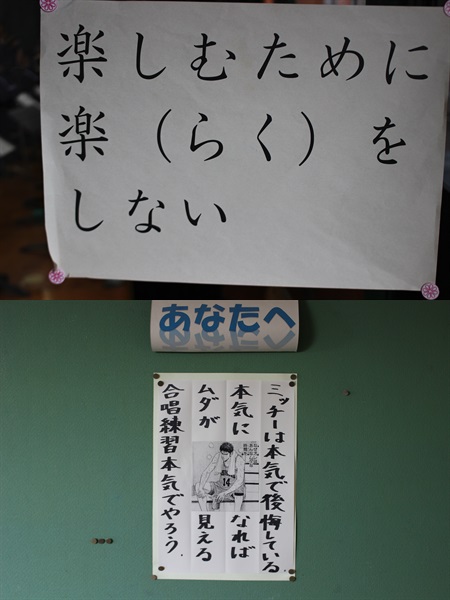 楽しむために
楽（らく）を
しない
あなたへ
ミッチーは本気で後悔している
本気になれば
ムダが見える
合唱練習本気でやろう.
14